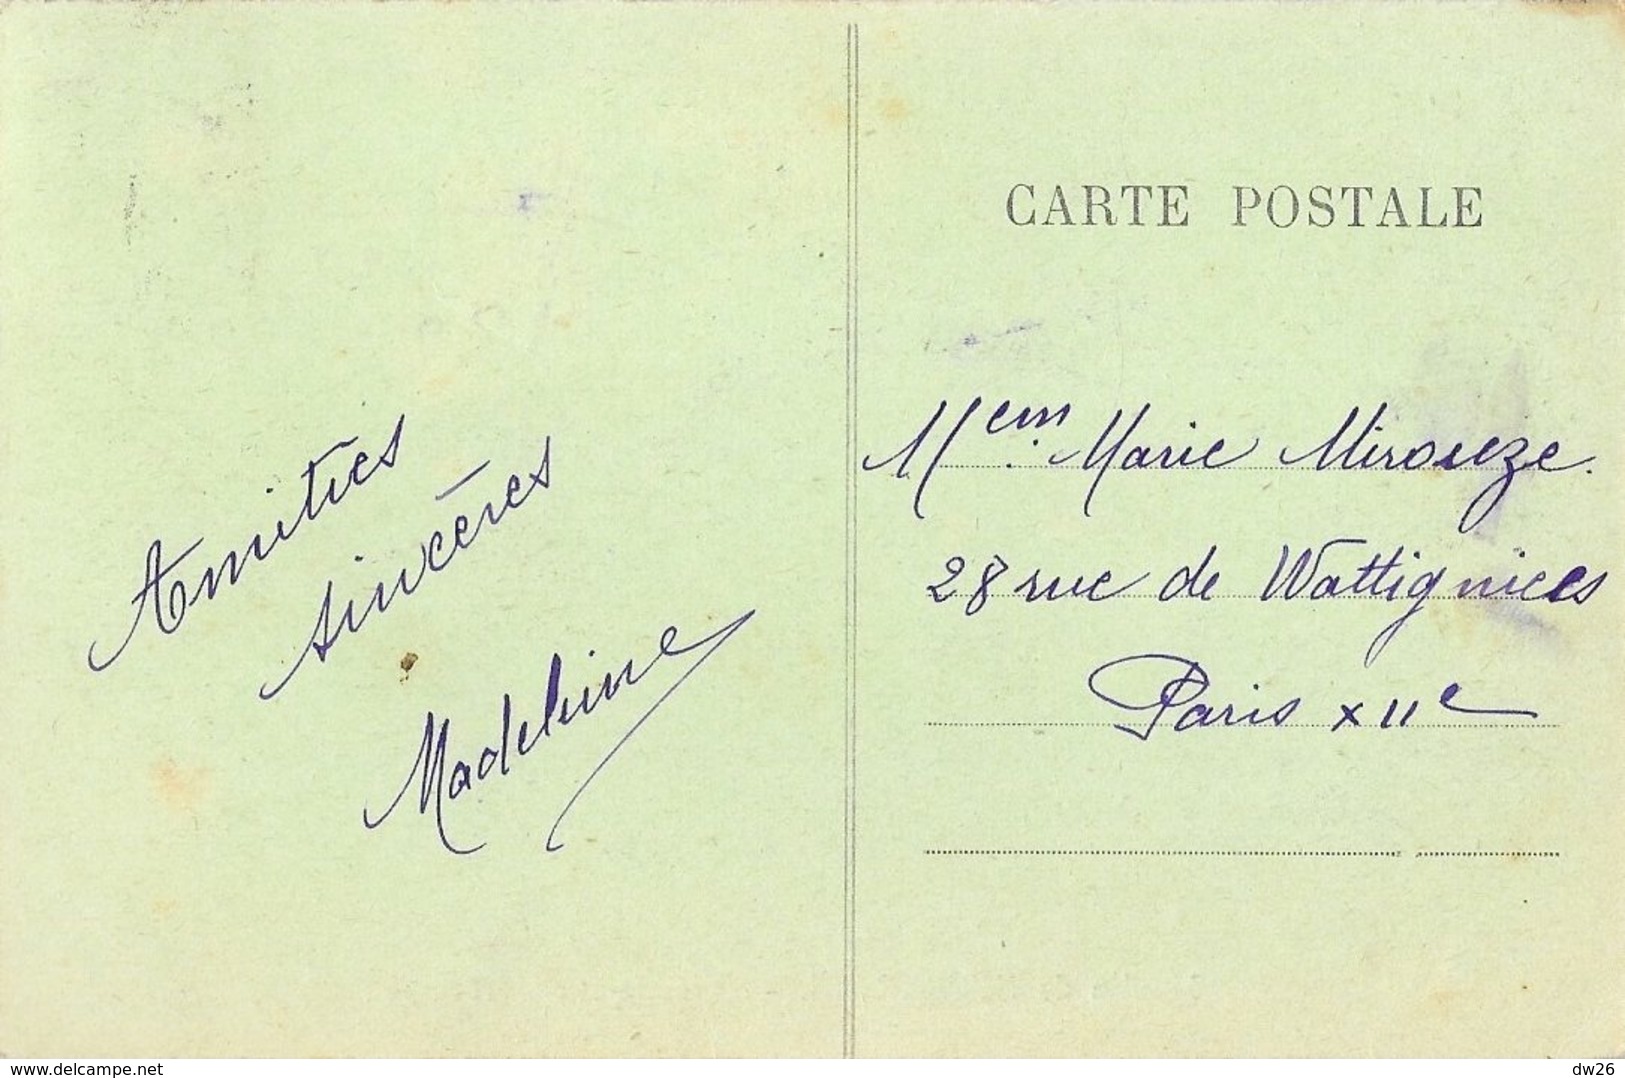 CARTE POSTALE
Amitiés
sincères
Madeleine
Marie Mirouze.
28 rue de Wattignies
Paris XIIe
delcampe.net
dw26